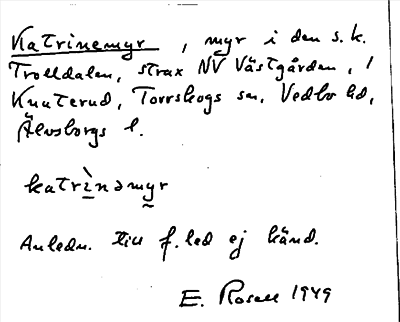 Katrinemyr, myr i den s.k.
Trolldalen, strax NV Västgården, i
Knuterud, Torrskogs sn, Vedbo hd,
Älvsborgs l.
katrìnəmyr
Anledn. till f.led ej känd.
E. Rosell 1949